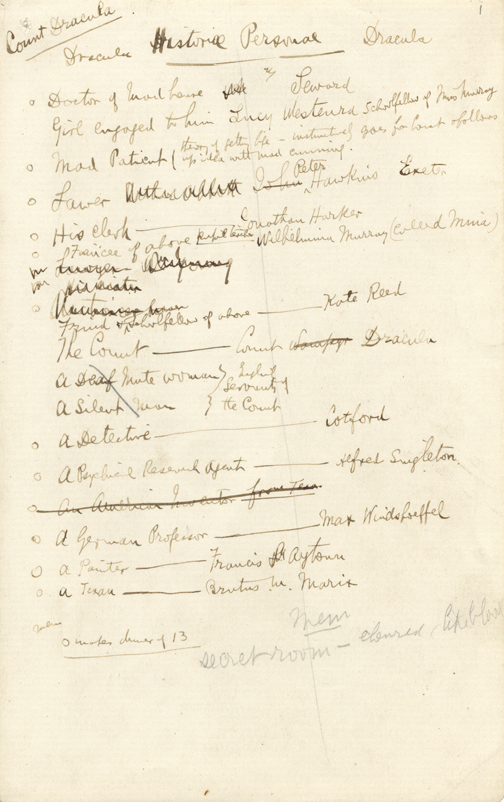 1
Count Dracula
Dracula Historiae Personae Dracula
Doctor of Mad house Seward
Girl engaged to him Lucy Westenra schoolfellow of Miss Murray
Mad Patient (theory of getting life - instinctively goes for Count & follows
up idea with mad cunning.
Lawer John Peter Hawkins Exeter
His clerk — Jonathan Harker
Fiancée of above pupil teacher Wilhelmina Murray (called Mina)
Lawyer
Friend & schoolfellow of above — Kate Reed
The Count — Count Wampyr Dracula
A Deaf Mute woman } English
Servants of
A Silent Man } the Count
A Detective — Cotford
A Psychical Research Agent — Alfred Singleton
An American Inventor from Texas
A German Professor — Max Windshoeffel
A Painter — Francis Aytown
A Texan — Brutus M. Marix
mem
makes dinner of 13
Mem
secret room - coloured like blood